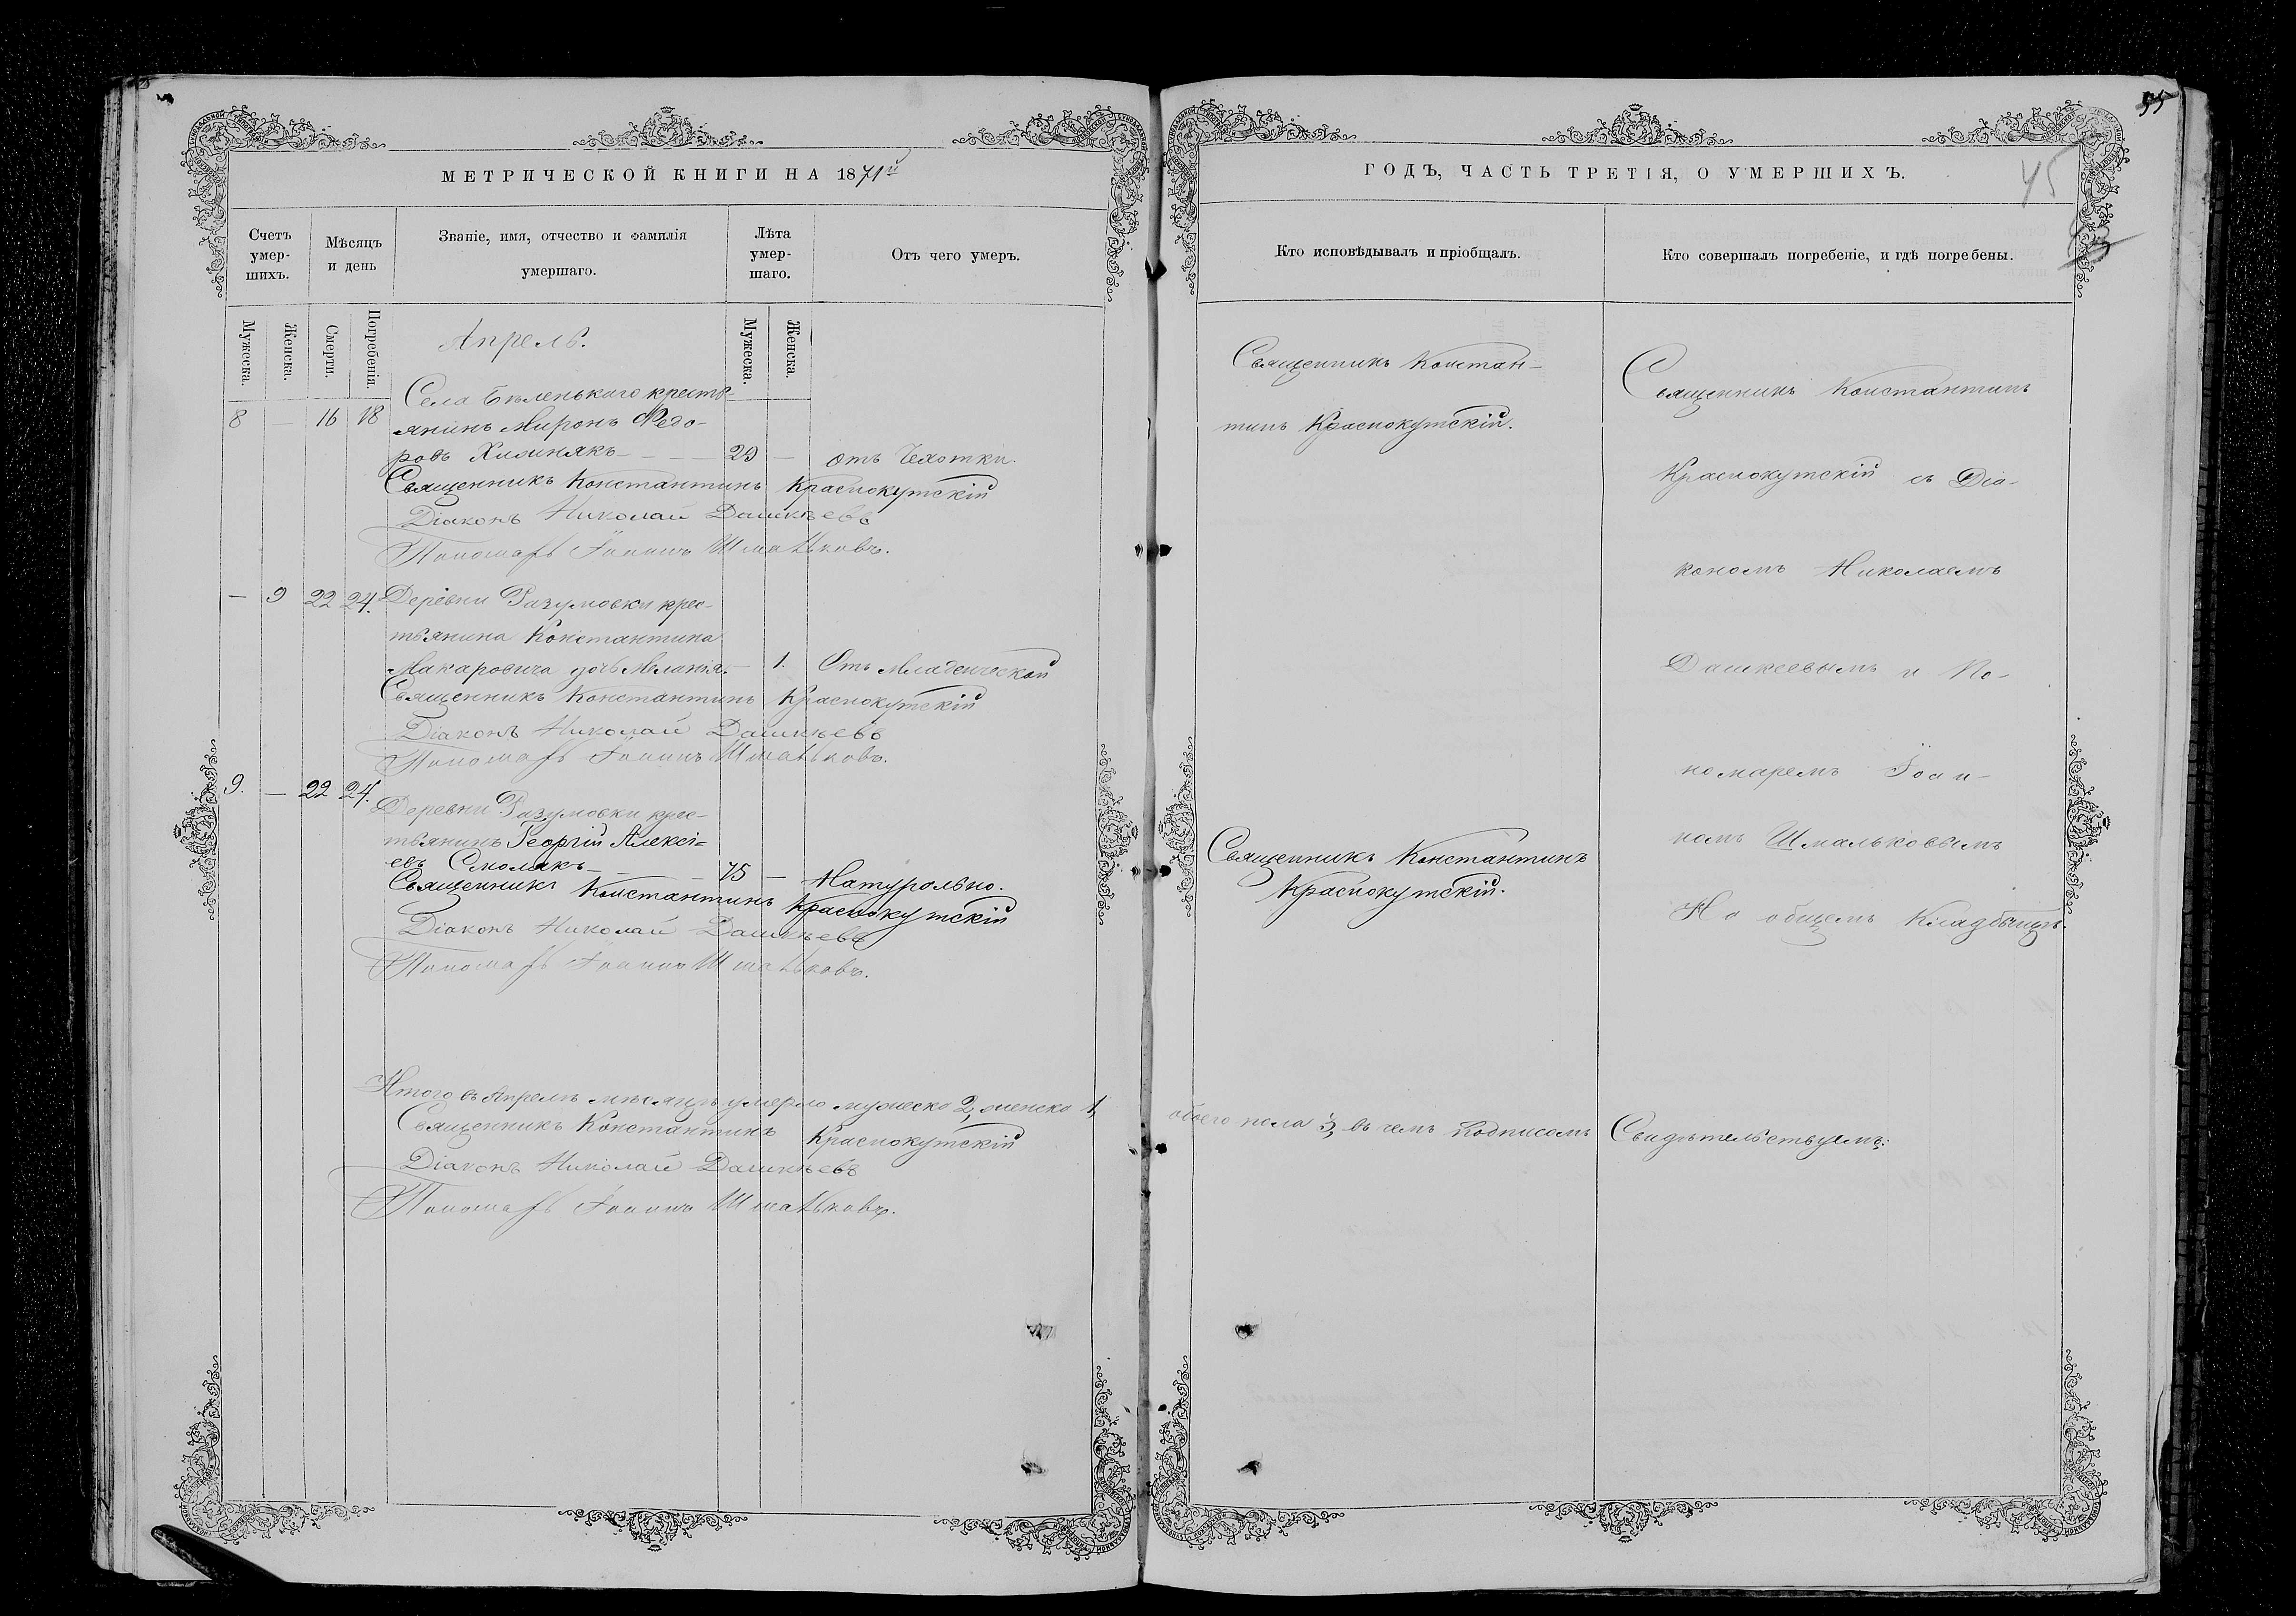 МЕТРИЧЕСКОЙ КНИГИ НА 1871й
Счетъ умер-шихъ.
Мѣсяцъ и день
Званіе, имя, отчество и фамилія умершаго.
Лѣта умер-шаго.
Отъ чего умеръ.
Мужеска.
Женска.
Смерти.
Погребенія.
Мужеска.
Женска.
Апрель.
Села Бѣленькаго кресть-
8 — 16 18 янинъ Миронъ Ѳедо-
ровъ — 29 — отъ Чахотки.
Священникъ Константинъ Краснокутскій
Діаконъ Николай Дашкѣевъ
Пономарь Іоаннъ Шмальковъ.
— 9 22 24. Деревни Разумовки крес-
тьянина Константина
Макаровича дочь Меланія. — 1. Отъ Младенческой
Священникъ Константинъ Краснокутскій
Діаконъ Николай Дашкѣевъ
Пономарь Іоаннъ Шмальковъ.
9. — 22 24. Деревни Разумовки крес-
тьянинъ Георгій Алексі=
евъ Смолякъ — 75 — Натурально.
Священникъ Константинъ Краснокутскій
Діаконъ Николай Дашкѣевъ
Пономарь Іоаннъ Шмальковъ.
Итого въ Апрелѣ мѣсяцѣ умерло мужеска 2, женска 1,
Священникъ Константинъ Краснокутскій
Діаконъ Николай Дашкѣевъ
Пономарь Іоаннъ Шмальковъ.
55
45
ГОДЪ, ЧАСТЬ ТРЕТІЯ, О УМЕРШИХЪ.
Кто исповѣдывалъ и пріобщалъ.
Кто совершалъ погребеніе, и гдѣ погребены.
Священникъ Констан-
тинъ Краснокутскій.
Священникъ Константинъ
Краснокутскій.
Священникъ Константинъ
Краснокутскій съ Діа-
кономъ Николаемъ
Дашкеевымъ и По-
номаремъ Іоан-
номъ Шмальковымъ
На общемъ Кладбищѣ.
обоего пола 3, въ чемъ подписомъ Свидѣтельствуемъ: